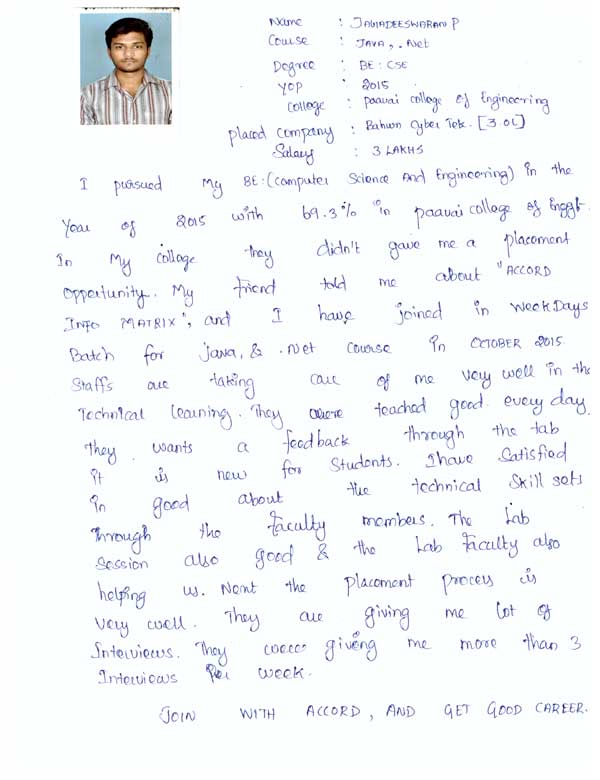 Name : JAGADEESWARAN P
Course : JAVA, .Net
Degree : BE: CSE
YOP : 2015
College : paavai college of Engineering
placed company : Bahwn Cyber Tek. [3.0L]
Salary : 3 LAKHS
I pursued My BE:(Computer Science And Engineering) in the
Year of 2015 with 69.3% in paavai college of Engg.
In My College they didn't gave me a placement
opportunity. My friend told me about "ACCORD
INFO MATRIX", and I have joined in WeekDays
Batch for Java, & .Net Course in OCTOBER 2015.
Staffs are taking care of me very well in the
Technical learning. They were teached good. every day
they wants a feedback through the tab
it is new for Students. I have Satisfied
in good about the technical Skill sets
through the faculty members. The Lab
Session also good & the Lab Faculty also
helping us. Next the placement process is
very well. They are giving me lot of
Interviews. They were giving me more than 3
Interviews Per week.
JOIN WITH ACCORD, AND GET GOOD CAREER.